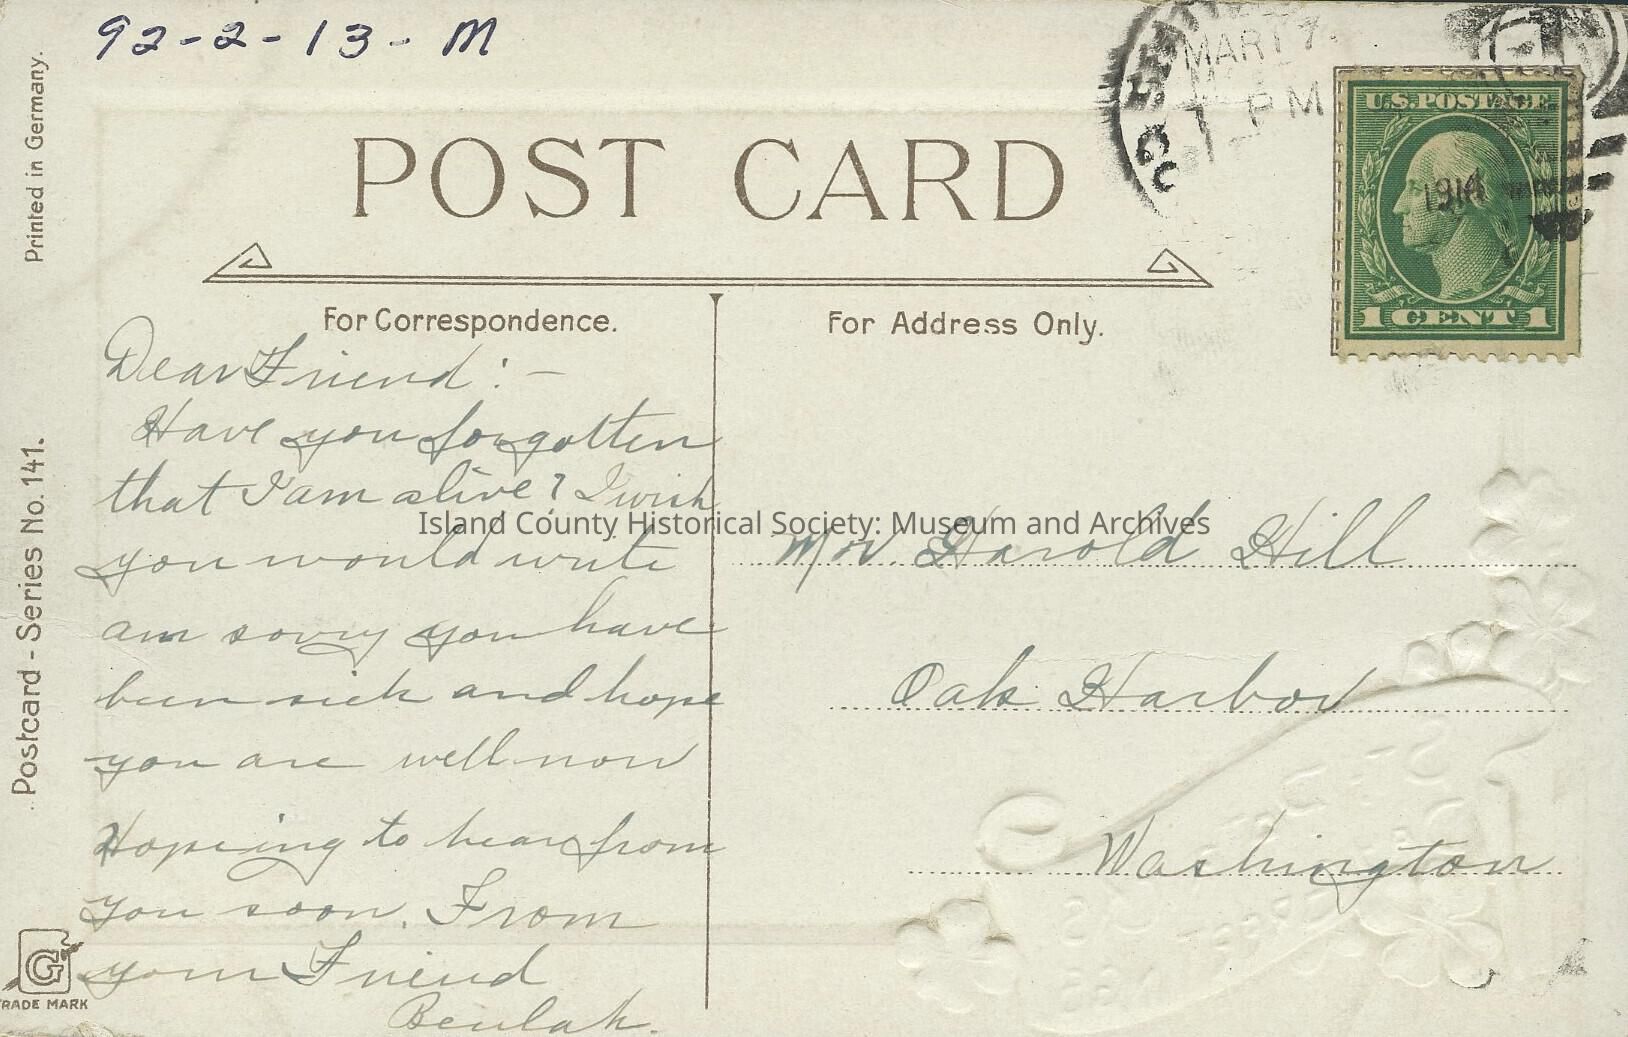 92-2-13-M
MAR 17
PM
U.S. POSTAGE
1914
1 CENT 1
Printed in Germany.
POST CARD
For Correspondence.
For Address Only.
Dear Friend:-
Have you forgotten
that I am alive? I wish
you would write
am sorry you have
been sick and hope
you are well now
Hopeing to hear from
you soon. From
your Friend
Beulah.
Island County Historical Society: Museum and Archives
Mr. Harold Hill
Oak Harbor
Washington
Postcard - Series No. 141.
G
TRADE MARK